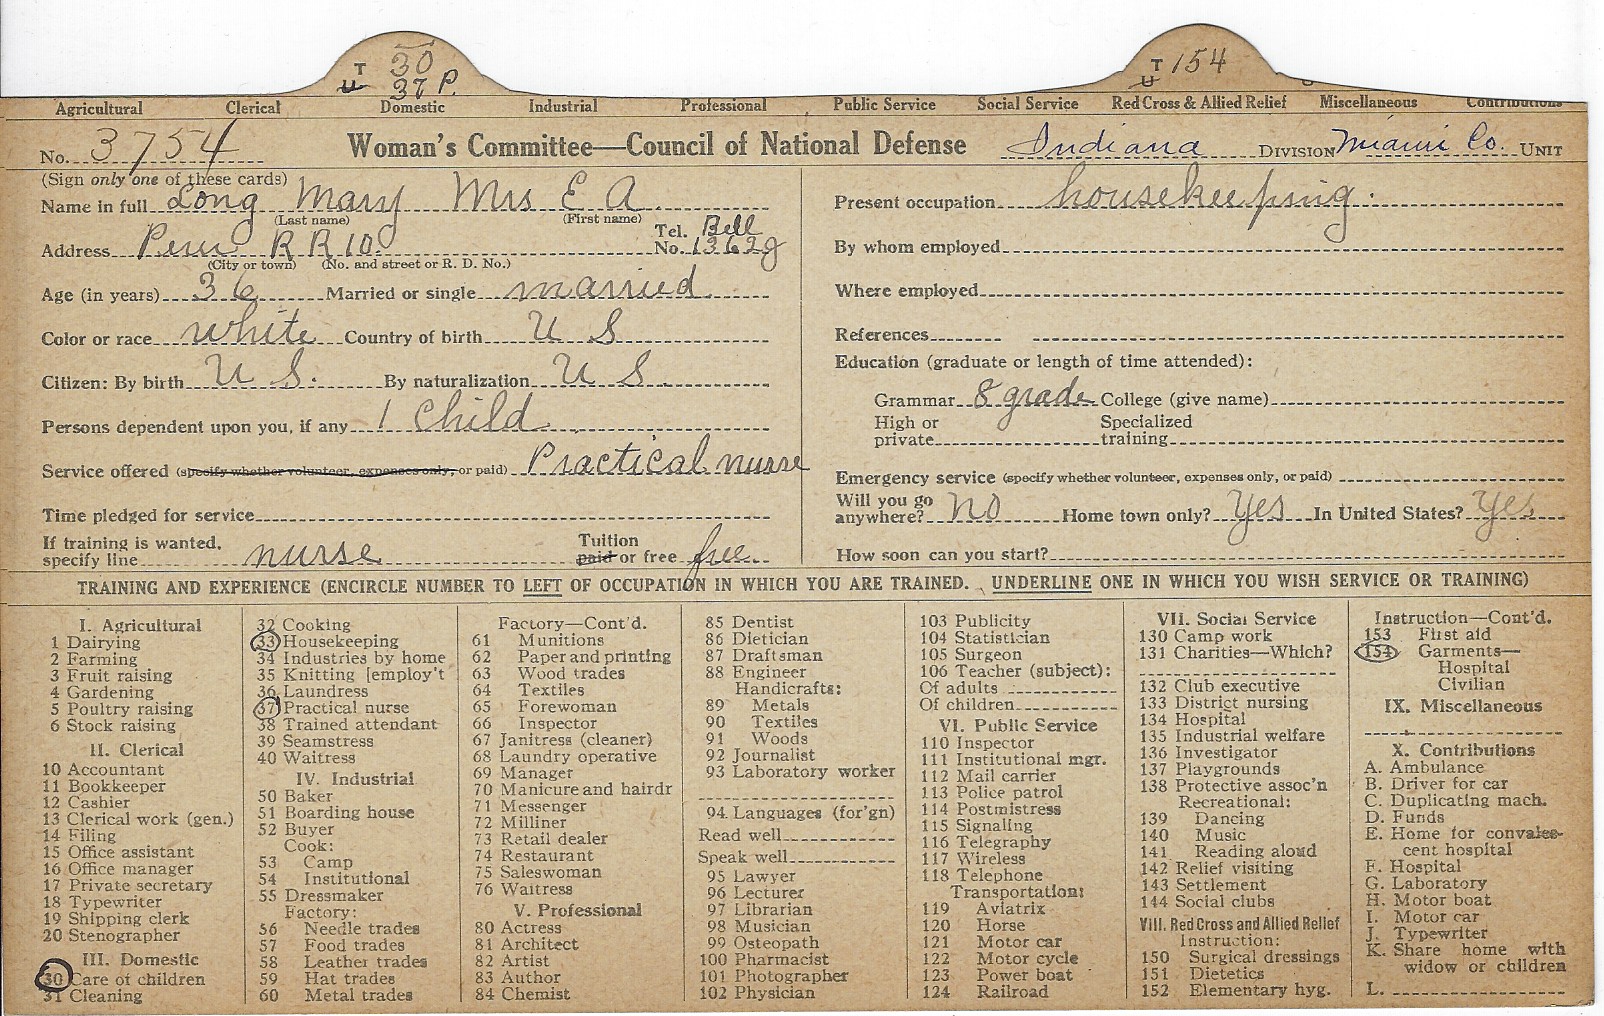 T 30
U 37 P.
T 154
U
Agricultural Clerical Domestic Industrial Professional Public Service Social Service Red Cross & Allied Relief Miscellaneous Contributions
No. 3754 Woman's Committee—Council of National Defense Indiana DIVISION Miami Co. UNIT
(Sign only one of these cards)
Name in full Long Mary Mrs E A
(Last name) (First name)
Address Peru R R 10. Tel. No. Bell 1362J
(City or town) (No. and street or R. D. No.)
Age (in years) 36 Married or single married
Color or race white Country of birth U S
Citizen: By birth U S. By naturalization U S.
Persons dependent upon you, if any 1 Child
Service offered (specify whether volunteer, expenses only, or paid) Practical nurse
Time pledged for service
If training is wanted, specify line nurse Tuition paid or free free
Present occupation housekeeping.
By whom employed
Where employed
References
Education (graduate or length of time attended):
Grammar 8 grade College (give name)
High or private Specialized training
Emergency service (specify whether volunteer, expenses only, or paid)
Will you go anywhere? No Home town only? Yes In United States? Yes
How soon can you start?
TRAINING AND EXPERIENCE (ENCIRCLE NUMBER TO LEFT OF OCCUPATION IN WHICH YOU ARE TRAINED. UNDERLINE ONE IN WHICH YOU WISH SERVICE OR TRAINING)
I. Agricultural
1 Dairying
2 Farming
3 Fruit raising
4 Gardening
5 Poultry raising
6 Stock raising
II. Clerical
10 Accountant
11 Bookkeeper
12 Cashier
13 Clerical work (gen.)
14 Filing
15 Office assistant
16 Office manager
17 Private secretary
18 Typewriter
19 Shipping clerk
20 Stenographer
III. Domestic
30 Care of children
31 Cleaning
32 Cooking
33 Housekeeping
34 Industries by home
35 Knitting [employ't
36 Laundress
37 Practical nurse
38 Trained attendant
39 Seamstress
40 Waitress
IV. Industrial
50 Baker
51 Boarding house
52 Buyer
Cook:
53 Camp
54 Institutional
55 Dressmaker
Factory:
56 Needle trades
57 Food trades
58 Leather trades
59 Hat trades
60 Metal trades
Factory—Cont'd.
61 Munitions
62 Paper and printing
63 Wood trades
64 Textiles
65 Forewoman
66 Inspector
67 Janitress (cleaner)
68 Laundry operative
69 Manager
70 Manicure and hairdr
71 Messenger
72 Milliner
73 Retail dealer
74 Restaurant
75 Saleswoman
76 Waitress
V. Professional
80 Actress
81 Architect
82 Artist
83 Author
84 Chemist
85 Dentist
86 Dietician
87 Draftsman
88 Engineer
Handicrafts:
89 Metals
90 Textiles
91 Woods
92 Journalist
93 Laboratory worker
94 Languages (for'gn)
Read well
Speak well
95 Lawyer
96 Lecturer
97 Librarian
98 Musician
99 Osteopath
100 Pharmacist
101 Photographer
102 Physician
103 Publicity
104 Statistician
105 Surgeon
106 Teacher (subject):
Of adults
Of children
VI. Public Service
110 Inspector
111 Institutional mgr.
112 Mail carrier
113 Police patrol
114 Postmistress
115 Signaling
116 Telegraphy
117 Wireless
118 Telephone
Transportation:
119 Aviatrix
120 Horse
121 Motor car
122 Motor cycle
123 Power boat
124 Railroad
VII. Social Service
130 Camp work
131 Charities—Which?
132 Club executive
133 District nursing
134 Hospital
135 Industrial welfare
136 Investigator
137 Playgrounds
138 Protective assoc'n
Recreational:
139 Dancing
140 Music
141 Reading aloud
142 Relief visiting
143 Settlement
144 Social clubs
VIII. Red Cross and Allied Relief
Instruction:
150 Surgical dressings
151 Dietetics
152 Elementary hyg.
Instruction—Cont'd.
153 First aid
154 Garments—
Hospital
Civilian
IX. Miscellaneous
X. Contributions
A. Ambulance
B. Driver for car
C. Duplicating mach.
D. Funds
E. Home for convales-
cent hospital
F. Hospital
G. Laboratory
H. Motor boat
I. Motor car
J. Typewriter
K. Share home with
widow or children
L.